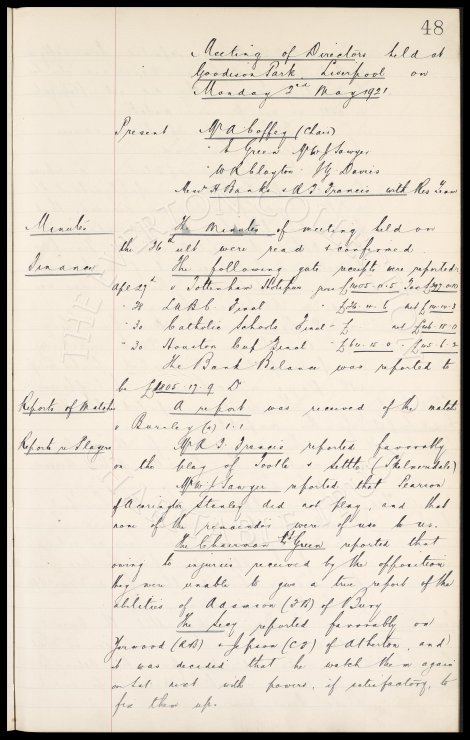 48
Meeting of Directors held at
Goodison Park, Liverpool on
Monday 2nd May 1921
Present Mr A Coffey (Chair)
" Green Mr W J Sawyer
" W R Clayton J G Davies
H Banks & A T Francis with Res Team
Minutes The Minutes of meeting held on
the 26th ult were read & confirmed
Finance The following gate receipts were reported:
Apl 27th v Tottenham Hotspur
" 30 Final
" 30 Catholic Schools Final
" 30 Cup Final
The Bank Balance was reported to
be 17.9 Dr
Reports of Matches A report was received of the match
v Burnley (a) 1.1
Reports re Players Mr A T Francis reported favorably
on the play of & (Skelmersdale)
Mr W J Sawyer reported that Pearson
of Accrington Stanley did not play, and that
none of the remainder were of use to us.
The Chairman & Green reported that
owing to injuries received by the opposition
they were unable to give a true report of the
abilities of Adamson (FB) of Bury
The Secy reported favorably on
(RB) & Jepson (CF) of Atherton, and
it was decided that he watch them again
on Sat next with powers, if satisfactory, to
fix them up.